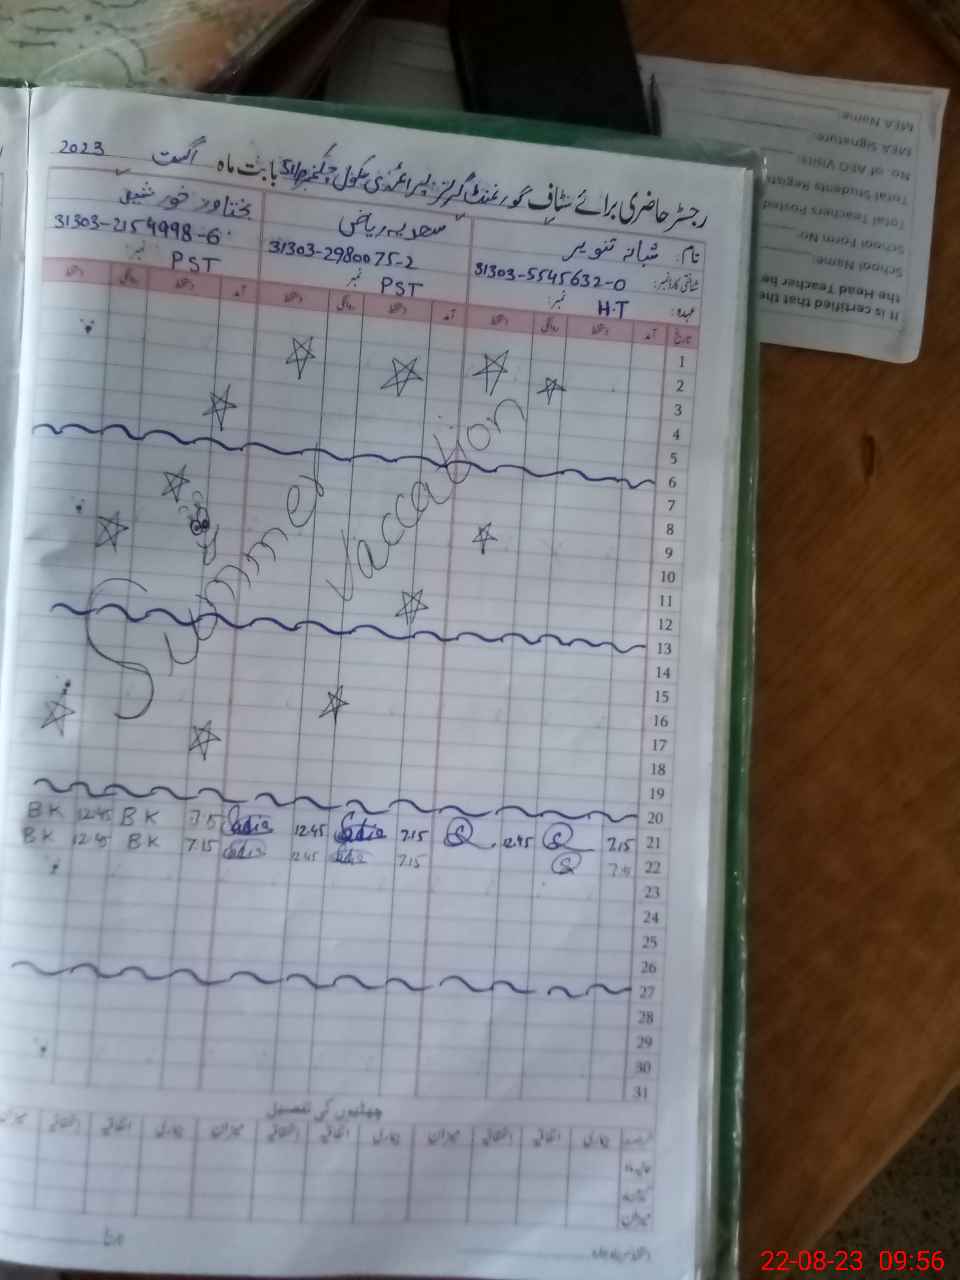 رجسٹر حاضری برائے سٹاف گورنمنٹ گرلز پرائمری سکول بابت ماہ اگست 2023
نام: شبانہ تنویر سعدیہ ریاض بختاور خورشید
شناختی کارڈ نمبر: 31303-5545632-0 31303-2980075-2 31303-2154998-6
عہدہ: H.T نمبر: PST نمبر: PST نمبر:
تاریخ آمد دستخط روانگی دستخط آمد دستخط روانگی دستخط آمد دستخط روانگی دستخط
1
2
3
4
5
6
7
8
9
10
11
12
13
14
15
16
17
18
19
20
Summer Vaccation
21 7.15 12.45 7.15 Sadia 12.45 Sadia 7.15 BK 12.45 BK
22 7.15 7.15 Sadia 12.45 Sadia 7.15 BK 12.45 BK
23
24
25
26
27
28
29
30
31
چھٹیوں کی تفصیل
It is certified that the
the Head Teacher be
School Name:
School Form No:
Total Teachers Posted
Total Students Registe
No. of AEO Visits:
MEA Signature:
MEA Name:
22-08-23 09:56